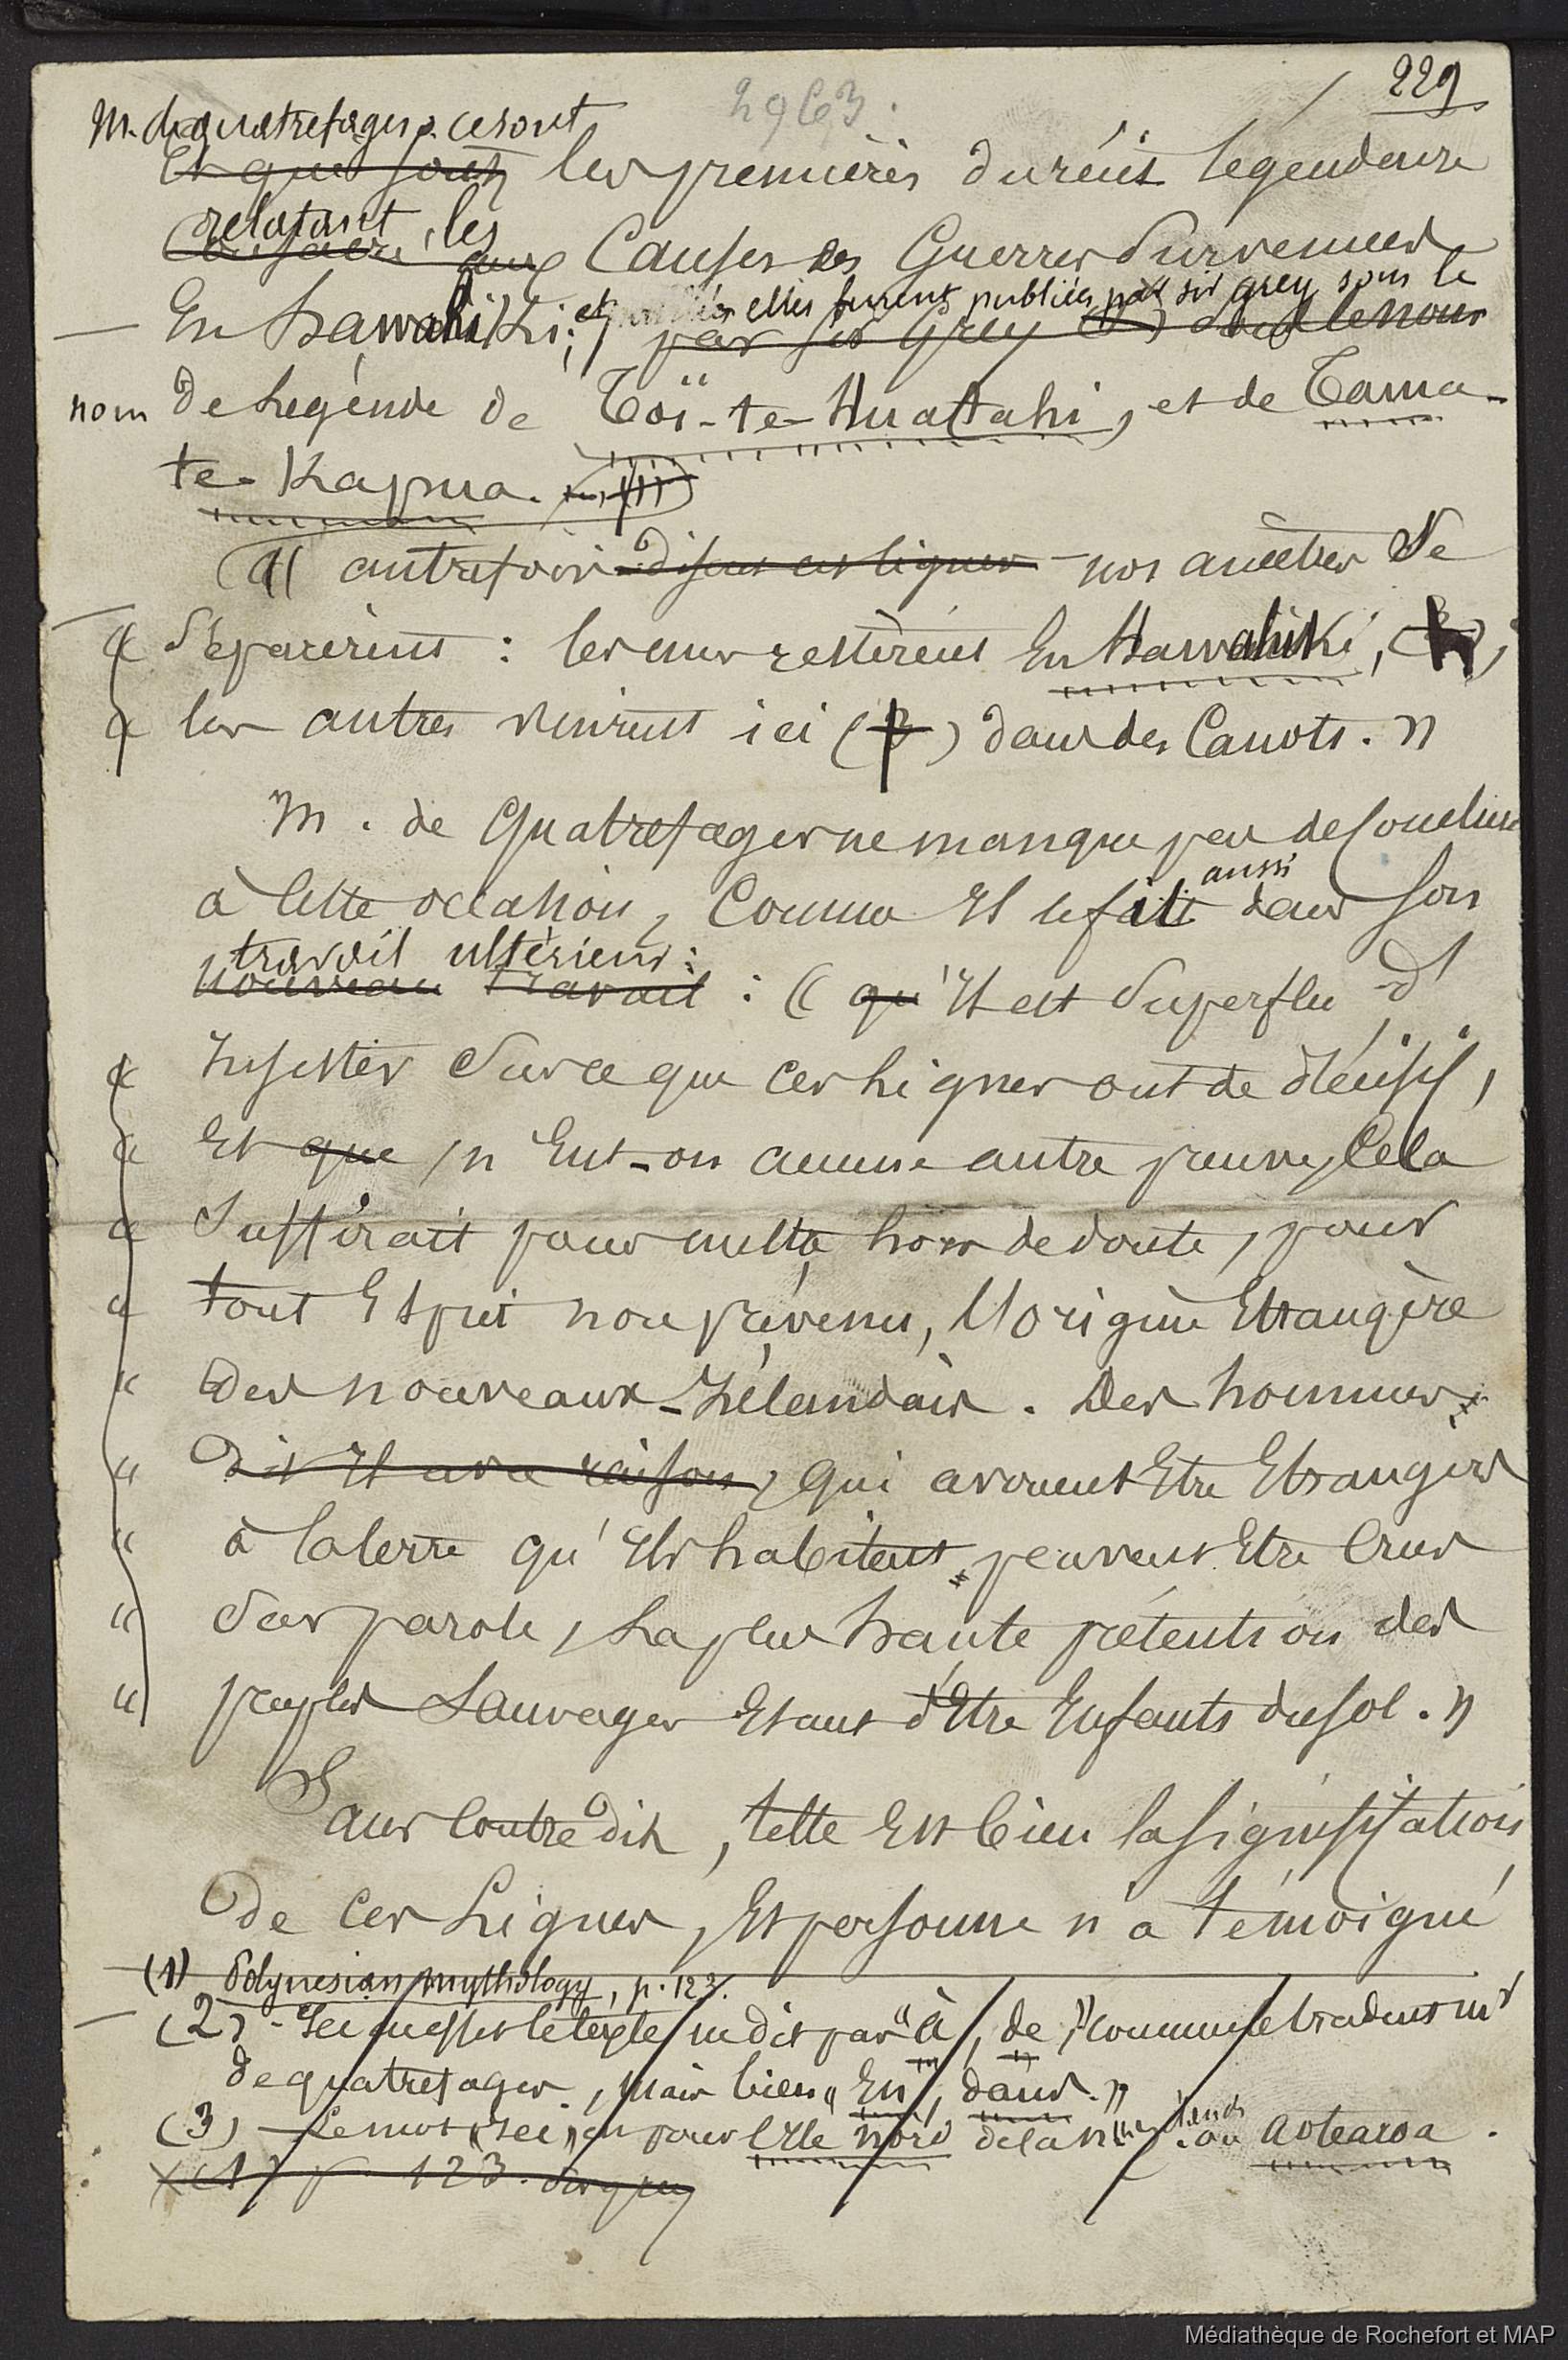 229
2963.
M. de Quatrefages. ce sont
Et que sont les premières du récit légendaire
relatant les
Consacré aux Causes des Guerres survenues
et elles furent publiées par sir grey sous le
En Hawahiki; par Sir Grey sous le nom
nom de Légende de Toï-te-Huatahi, et de Tama-
te-Kapua. (1)
« autrefois disent ces lignes - nos ancêtres se
« séparèrent : les uns restèrent En Hawahiki,
« les autres vinrent ici (3) dans des Canots. »
M. de Quatrefages ne manque pas de Conclure
à cette occasion, Comme Il le fait aussi dans son
travail ultérieur :
nouveau travail : « qu'Il est superflu d'
« Insister sur ce que ces Lignes ont de décisif,
« Et que, n'Eut-on aucune autre preuve, Cela
« suffirait pour mettre hors de doute, pour
« tout Esprit non prévenu, l'origine Etrangère
« des nouveaux-Zélandais. Des hommes,
« dit Il avec raison, qui avouent Etre Etrangers
« à la terre qu'Ils habitent, peuvent Etre Crus
« sur parole, La plus haute prétention des
« peuples Sauvages Etant d'Etre Enfants du sol. »
Sans Contredit, telle Est bien la signification
de ces Lignes, Et personne n'a témoigné
(1) Polynesian mythology, p. 123.
(2) - Ici aussi le texte ne dit pas "à, de," comme le traduit Mr
de quatrefages, mais bien "En, dans."
(3) - Le mot "ici" est pour l'Ile nord de la nlle Zélande ou Aotearoa.
(1) p. 123. Sir grey
Médiathèque de Rochefort et MAP